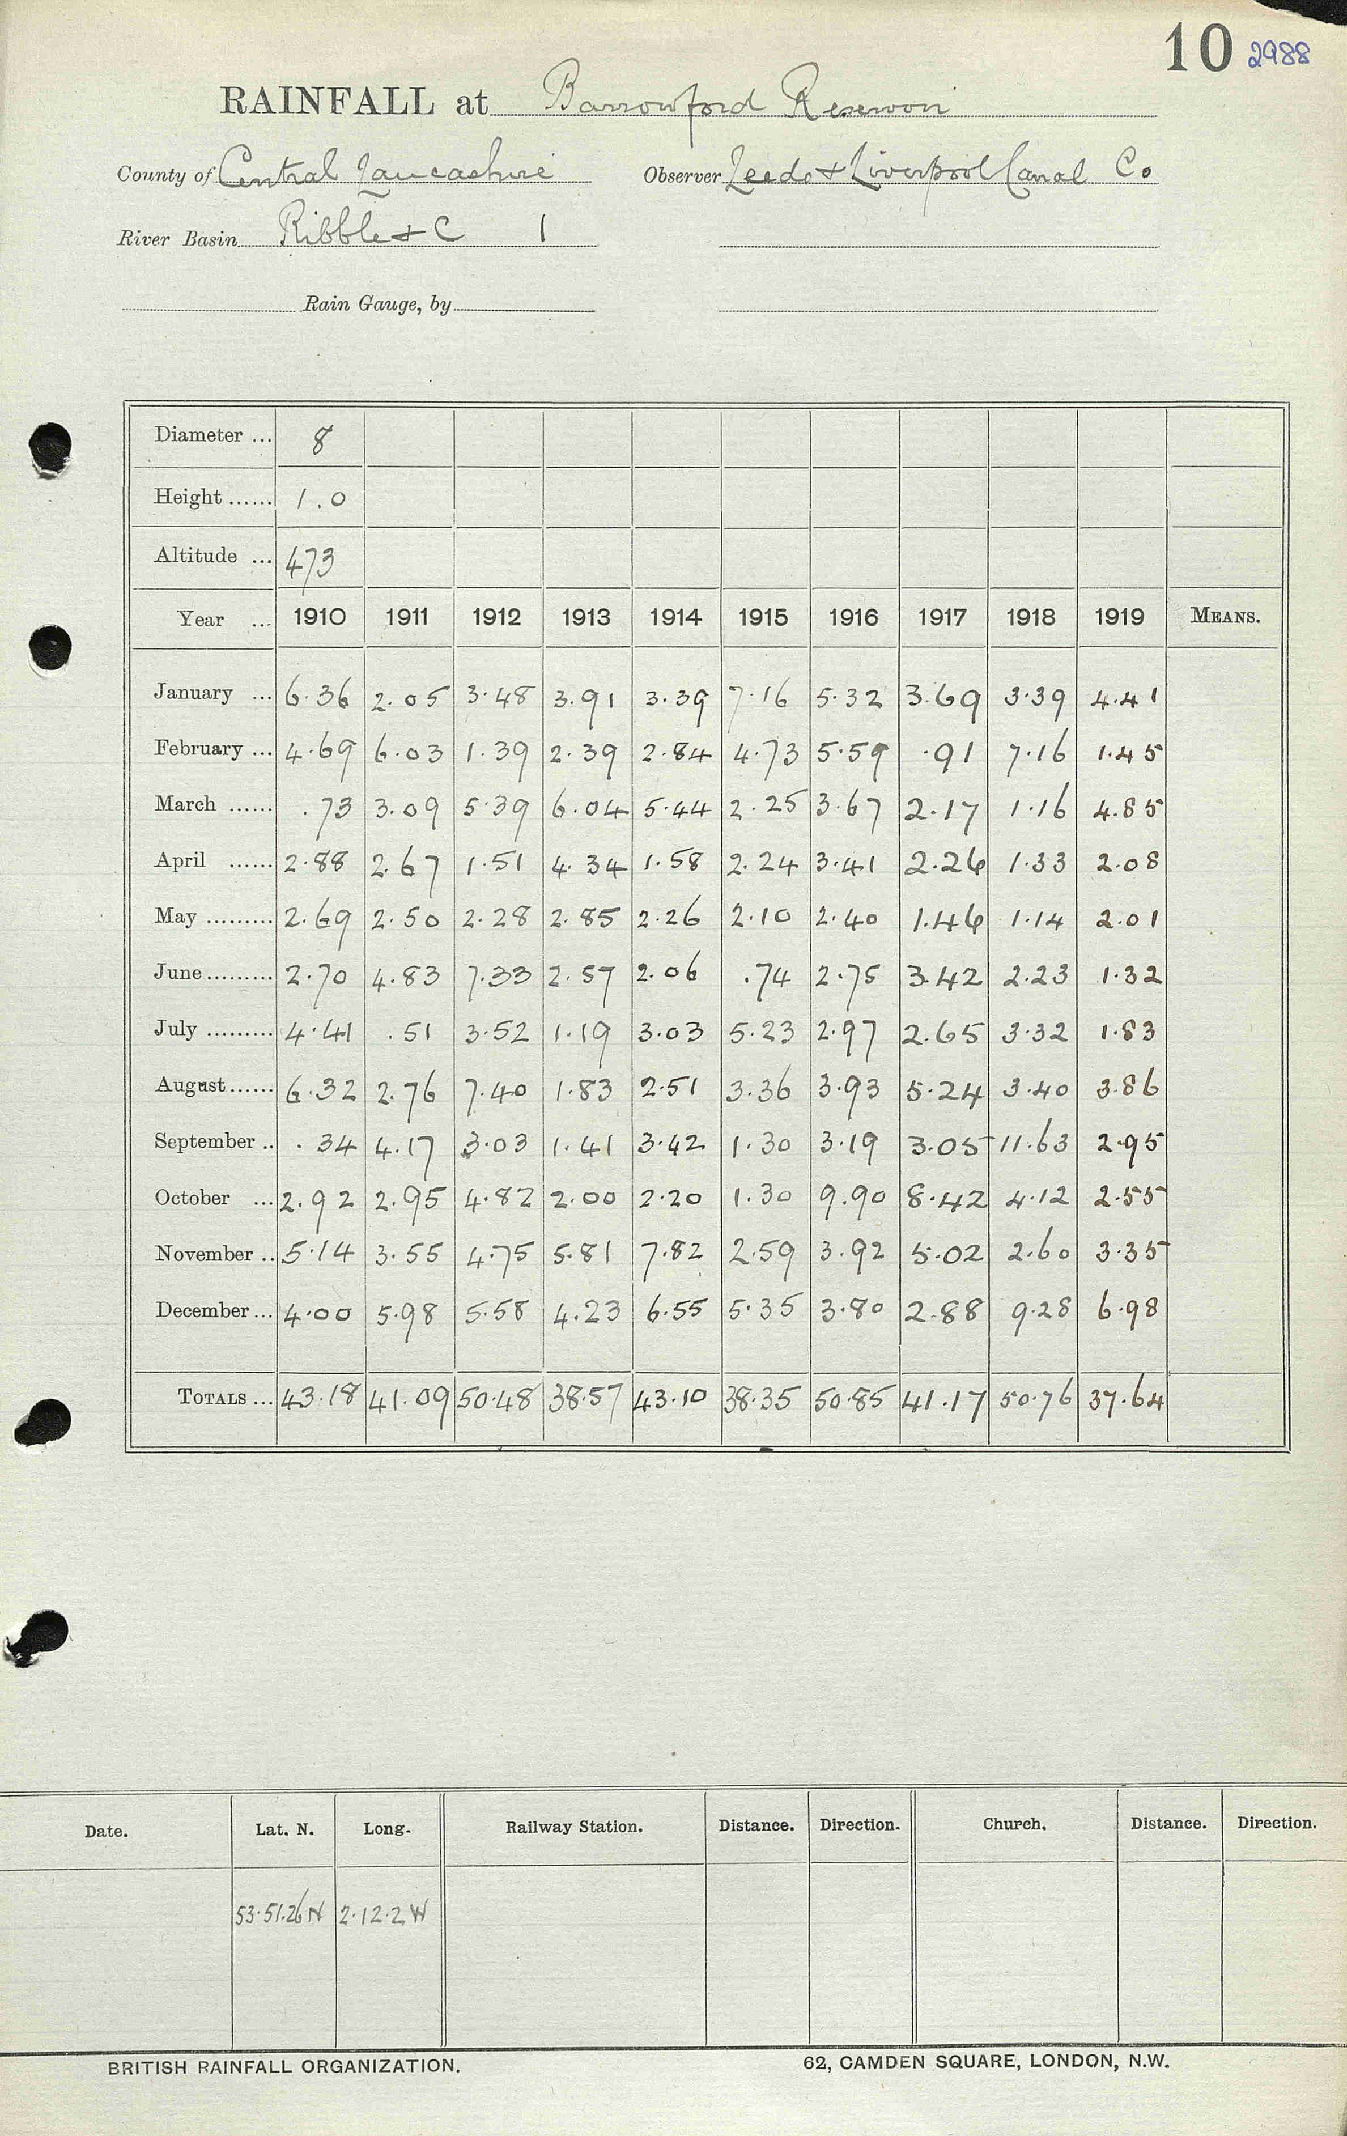 10 2988
RAINFALL at Barrowford Reservoir
County of Central Lancashire Observer Leeds & Liverpool Canal Co
River Basin Ribble &c 1
Rain Gauge, by
Diameter ... 8
Height ...... 1.0
Altitude ... 473
Year ... 1910 1911 1912 1913 1914 1915 1916 1917 1918 1919 MEANS.
January ... 6.36 2.05 3.48 3.91 3.39 7.16 5.32 3.69 3.39 4.41
February ... 4.69 6.03 1.39 2.39 2.84 4.73 5.59 .91 7.16 1.45
March ...... .73 3.09 5.39 6.04 5.44 2.25 3.67 2.17 1.16 4.85
April ...... 2.88 2.67 1.51 4.34 1.58 2.24 3.41 2.26 1.33 2.08
May ......... 2.69 2.50 2.28 2.85 2.26 2.10 2.40 1.46 1.14 2.01
June ......... 2.70 4.83 7.33 2.57 2.06 .74 2.75 3.42 2.23 1.32
July ......... 4.41 .51 3.52 1.19 3.03 5.23 2.97 2.65 3.32 1.83
August ...... 6.32 2.76 7.40 1.83 2.51 3.36 3.93 5.24 3.40 3.86
September .. .34 4.17 3.03 1.41 3.42 1.30 3.19 3.05 11.63 2.95
October ... 2.92 2.95 4.82 2.00 2.20 1.30 9.90 8.42 4.12 2.55
November .. 5.14 3.55 4.75 5.81 7.82 2.59 3.92 5.02 2.60 3.35
December ... 4.00 5.98 5.58 4.23 6.55 5.35 3.80 2.88 9.28 6.98
TOTALS ... 43.18 41.09 50.48 38.57 43.10 38.35 50.85 41.17 50.76 37.64
Date. Lat. N. Long. Railway Station. Distance. Direction. Church. Distance. Direction.
53.51.26 N 2.12.2 W
BRITISH RAINFALL ORGANIZATION. 62, CAMDEN SQUARE, LONDON, N.W.